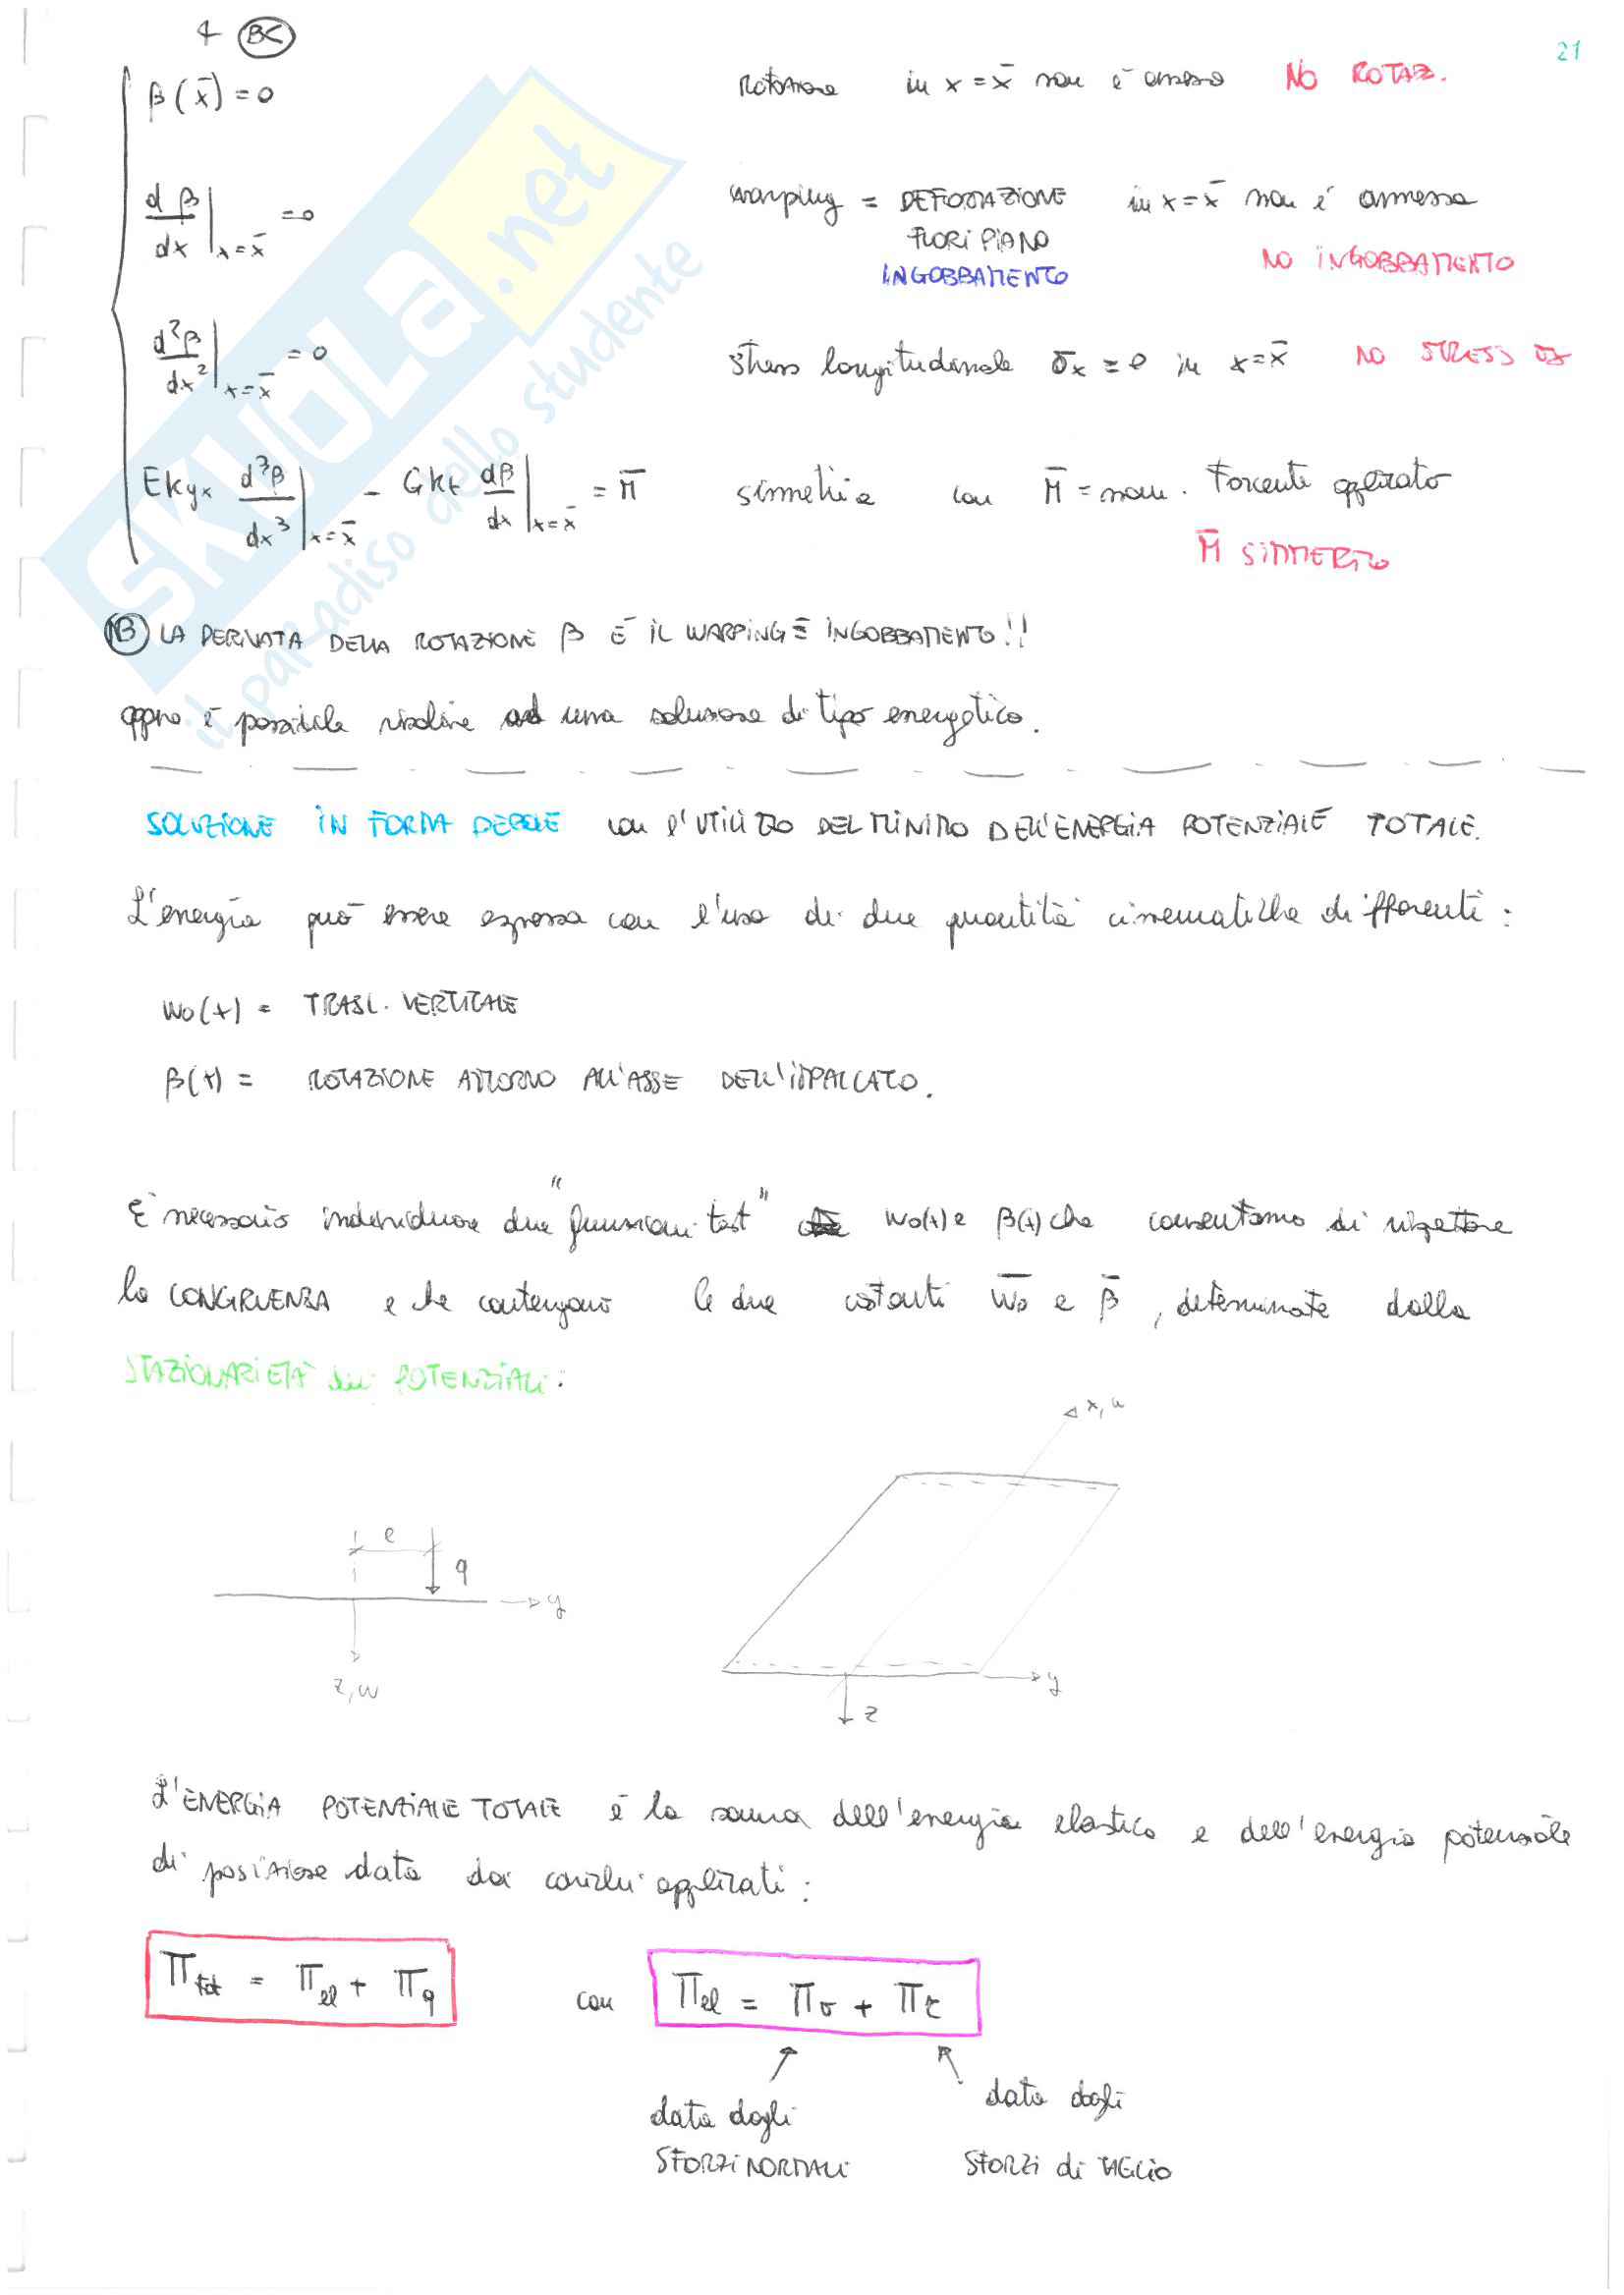 4 BC
21
β(x̄) = 0 Rotazione in x = x̄ non è ammessa NO ROTAZ.
dβ/dx |x=x̄ = 0 warping = DEFORMAZIONE FUORI PIANO in x = x̄ non è ammessa
INGOBBAMENTO NO INGOBBAMENTO
d²β/dx² |x=x̄ = 0 stress longitudinale σx = 0 in x = x̄ NO STRESS σx
Ekyx d³β/dx³ |x=x̄ - Gkt dβ/dx |x=x̄ = M̄ simmetria con M̄ = mom. Torcente applicato
M̄ SIMMETRICO
NB LA DERIVATA DELLA ROTAZIONE β È IL WARPING ≡ INGOBBAMENTO!!
oppure è possibile risolvere ad una soluzione di tipo energetico.
SOLUZIONE IN FORMA DEBOLE con l'UTILIZZO DEL MINIMO DELL'ENERGIA POTENZIALE TOTALE.
L'energia può essere espressa con l'uso di due quantità cinematiche differenti:
wo(x) = TRASL. VERTICALE
β(x) = ROTAZIONE ATTORNO ALL'ASSE DELL'IMPALCATO.
È necessario individuare due "funzioni test" wo(x) e β(x) che consentano di rispettare
la CONGRUENZA e che contengano le due costanti w̄o e β̄, determinate dalla
STAZIONARIETÀ dei POTENZIALI:
x, u
e
q
y
z, w
y
z
L'ENERGIA POTENZIALE TOTALE è la somma dell'energia elastica e dell'energia potenziale
di posizione data dai carichi applicati:
Πtot = Πel + Πq con Πel = Πσ + Πτ
data dagli SFORZI NORMALI
data dagli SFORZI di TAGLIO
SKUOLA.net
il paradiso dello studente